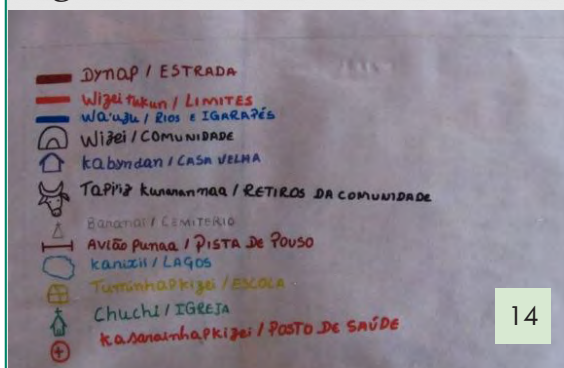 Dynap / ESTRADA
Wizei tukun / LIMITES
Wa'uzu / RIOS E IGARAPÉS
Wizei / COMUNIDADE
kabyndan / CASA VELHA
/ RETIROS DA COMUNIDADE
/ CEMITERIO
Avião punaa / PISTA DE POUSO
kanixii / LAGOS
Tuminhapkizei / ESCOLA
Chuchi / IGREJA
kasarainhapkizei / POSTO DE SAÚDE
14